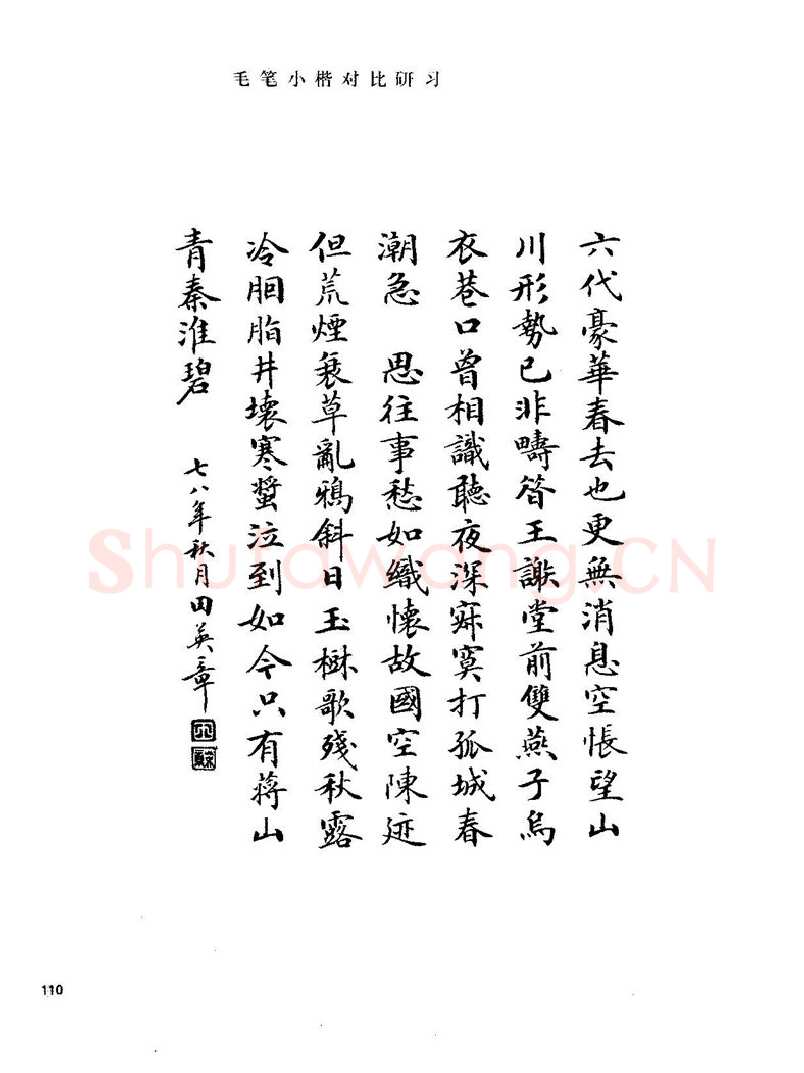 毛笔小楷对比研习
六代豪華春去也更無消息空悵望山
川形勢已非疇昝王謝堂前雙燕子烏
衣巷口曾相識聽夜深寂寞打孤城春
潮急 思往事愁如織懷故國空陳迹
但荒煙衰草亂鴉斜日玉樹歌殘秋露
冷胭脂井壞寒螀泣到如今只有蔣山
青秦淮碧
七八年秋月田英章
Shufawang.CN
110